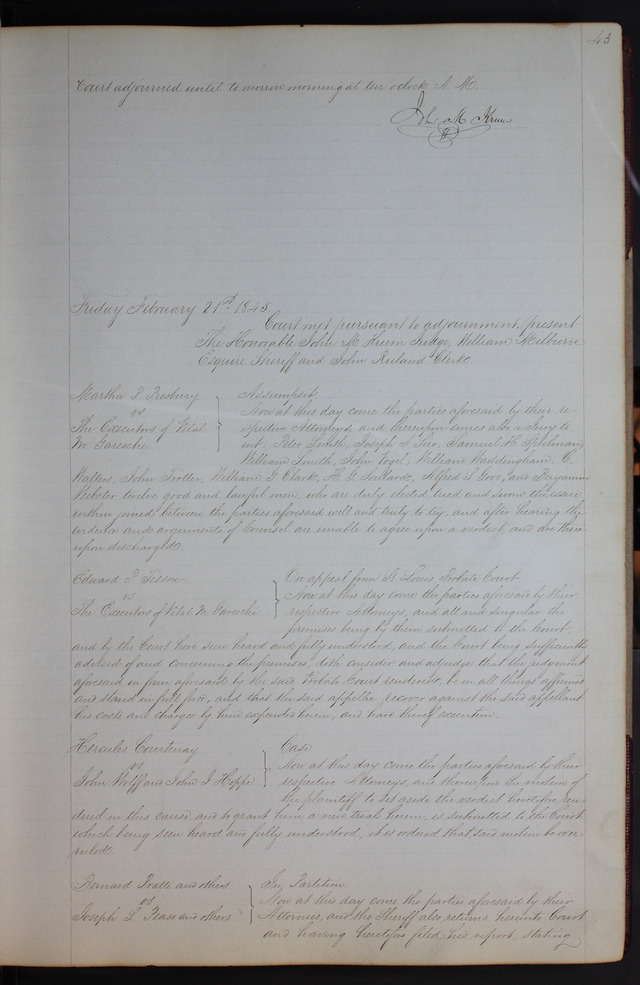 43
Court adjourned until to morrow morning at ten oclock A. M.
John M Krum
Friday February 21st 1845
Court met pursuant to adjournment, present
The Honorable John M Krum Judge, William Milburn
Esquire Sheriff and John Ruland Clerk
Martha P Presbury
vs
The Executors of Vital
M Garesche
Assumpsit.
Now at this day come the parties aforesaid by their re-
spective Attorneys, and thereupon comes also a Jury to
wit. Peter Smith, Joseph A Samuel H
William Smith, John Vogel, William Waddingham, C.
Walters, John Trotler, William G Clark, H. L. Alfred L Gove, and Benjamin
Webster twelve good and lawful men, who are duly elected tried and sworn the issue
within joined between the parties aforesaid well and truly to try, and after hearing the
evidence and arguments of Counsel are unable to agree upon a verdict, and are there-
upon discharged.
Edward P Tesson
vs
The Executors of Vital M Garesche
On appeal from St Louis Probate Court
Now at this day come the parties aforesaid by their
respective Attorneys, and all and singular the
premises being by them submitted to the Court,
and by the Court here seen heard and fully understood, and the Court being sufficiently
advised of and concerning the premises, doth consider and adjudge that the judgment
aforesaid in form aforesaid by the said Probate Court rendered, be in all things affirmed
and stand in full force, and that the said appellee recover against the said appellant
his costs and charges by him expended herein, and have thereof execution.
Hercules Courtenay
vs
John Wolff and John J Hoppe
Case
Now at this day come the parties aforesaid by their
respective Attorneys, and thereupon the motion of
the plaintiff to set aside the verdict heretofore ren-
dered in this cause and to grant him a new trial herein, is submitted to the Court
which being seen heard and fully understood, it is ordered that said motion be over-
ruled.
Bernard Pratte and others
vs
Joseph L Pease and others
In Partition
Now at this day come the parties aforesaid by their
Attornies, and the Sheriff also returns here into Court
and having heretofore filed his report, stating